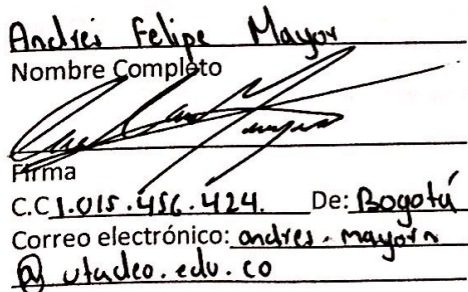 Andres Felipe Mayor
Nombre Completo
Firma
C.C 1.015.456.424. De: Bogotá
Correo electrónico: andres.mayorn
@ utadeo.edu.co